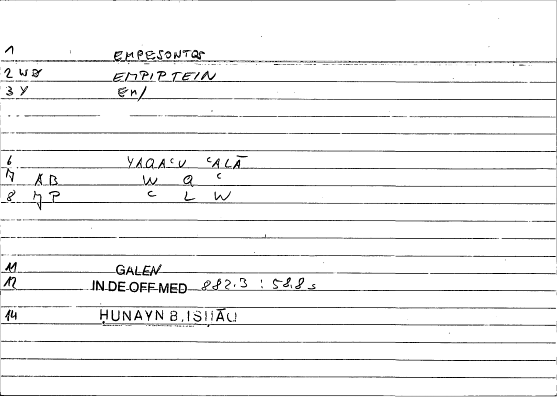 1 EMPESONTOS
2 WS EMPIPTEIN
3 Y En/
6 YAQAᶜU ᶜALĀ
7 AB W Q ᶜ
8 MP ᶜ L W
11 GALEN
12 IN DE OFF MED 882.3 : 58.8s
14 ḤUNAYN B. ISḤĀQ